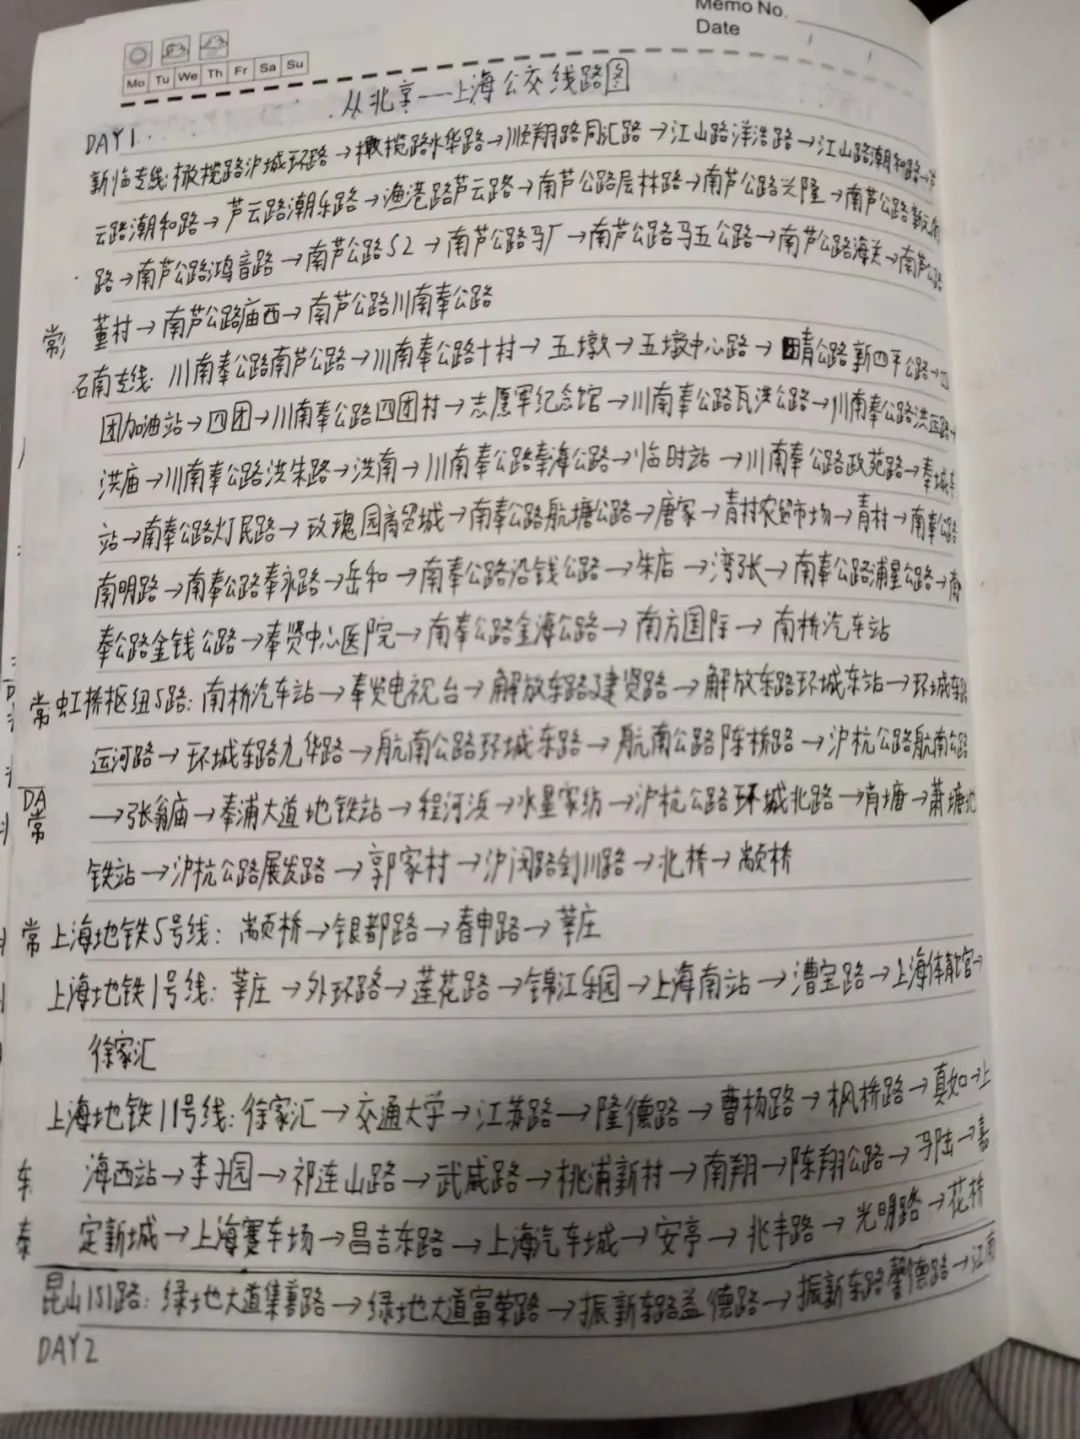 Memo No.
Date
Mo Tu We Th Fr Sa Su
从北京—上海公交线路图
DAY1.
新临专线:橄榄路沪城环路→橄榄路水华路→顺翔路同汇路→江山路洋浩路→江山路潮和路→芦
云路潮和路→芦云路潮乐路→渔港路芦云路→南芦公路层林路→南芦公路兴隆→南芦公路新元南
路→南芦公路鸿音路→南芦公路S2→南芦公路马厂→南芦公路马五公路→南芦公路海关→南芦公路
董村→南芦公路庙西→南芦公路川南奉公路
石南专线:川南奉公路南芦公路→川南奉公路十村→五墩→五墩中心路→青公路新四平公路→四
团加油站→四团→川南奉公路四团村→志愿军纪念馆→川南奉公路瓦洪公路→川南奉公路洪运路→
洪庙→川南奉公路洪朱路→洪南→川南奉公路奉海公路→临时站→川南奉公路政苑路→奉城车
站→南奉公路灯民路→玫瑰园商贸城→南奉公路航塘公路→唐家→青村农贸市场→青村→南奉公路
南明路→南奉公路奉永路→岳和→南奉公路沿钱公路→朱店→湾张→南奉公路浦星公路→南
奉公路金钱公路→奉贤中心医院→南奉公路金海公路→南方国际→南桥汽车站
常虹桥枢纽5路:南桥汽车站→奉贤电视台→解放东路建贤路→解放东路环城东站→环城东路
运河路→环城东路九华路→航南公路环城东路→航南公路陈桥路→沪杭公路航南公路
→张翁庙→奉浦大道地铁站→程河浜→水星家纺→沪杭公路环城北路→肖塘→萧塘地
铁站→沪杭公路展发路→郭家村→沪闵路剑川路→北桥→颛桥
常上海地铁5号线:颛桥→银都路→春申路→莘庄
上海地铁1号线:莘庄→外环路→莲花路→锦江乐园→上海南站→漕宝路→上海体育馆→
徐家汇
上海地铁11号线:徐家汇→交通大学→江苏路→隆德路→曹杨路→枫桥路→真如→上
海西站→李子园→祁连山路→武威路→桃浦新村→南翔→陈翔公路→马陆→嘉
定新城→上海赛车场→昌吉东路→上海汽车城→安亭→兆丰路→光明路→花桥
昆山151路:绿地大道集善路→绿地大道富荣路→振新东路益德路→振新东路馨德路→江南
DAY2
常
DA
常
东
泰